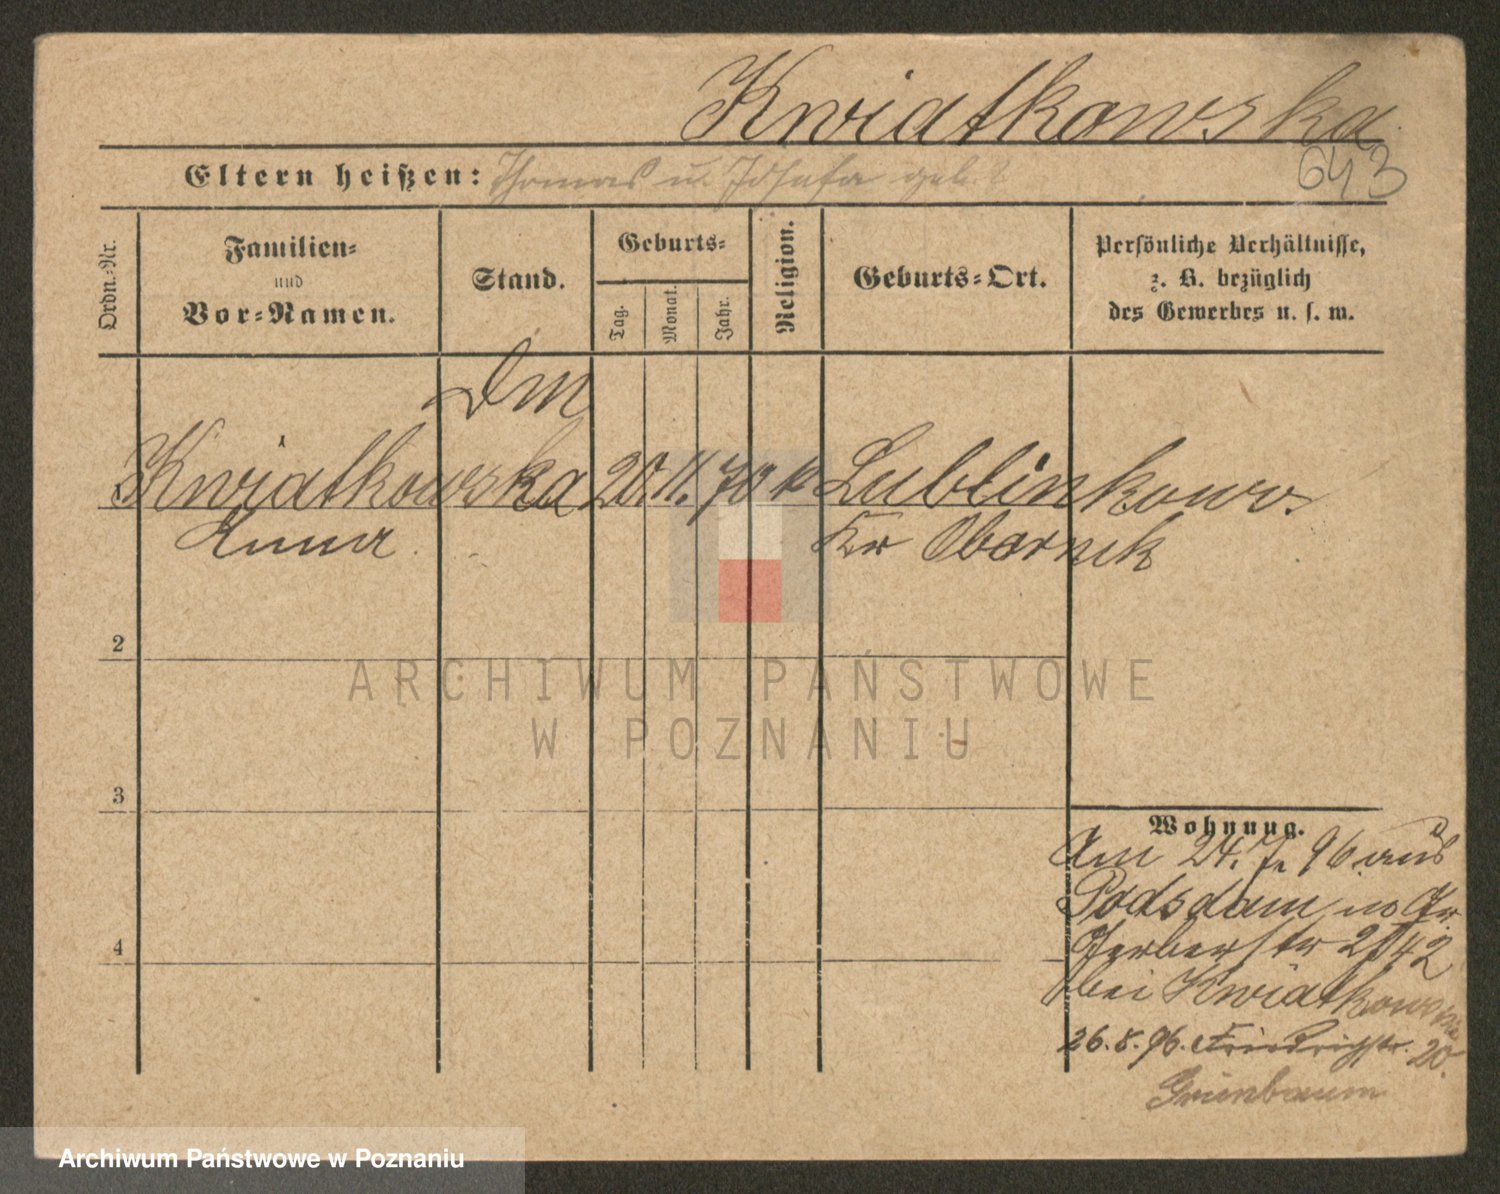 Kwiatkowska
643
Eltern heißen: Thomas u. Josefa geb. ?
Ordn.-Nr.
Familien-
und
Vor-Namen.
Stand.
Geburts-
Tag.
Monat.
Jahr.
Religion.
Geburts-Ort.
Persönliche Verhältnisse,
z. B. bezüglich
des Gewerbes u. s. w.
Dm
Kwiatkowska 20. 11. 70 k Lublinkowo
Anna Kr Obornik
2
3
4
Wohnung.
Am 24. 7. 96 aus
Podsdam
Gerberstr
bei Kwiatkowska
26. 8. 96. Friedrichstr. 20.
Grünbaum
ARCHIWUM PAŃSTWOWE
W POZNANIU
Archiwum Państwowe w Poznaniu